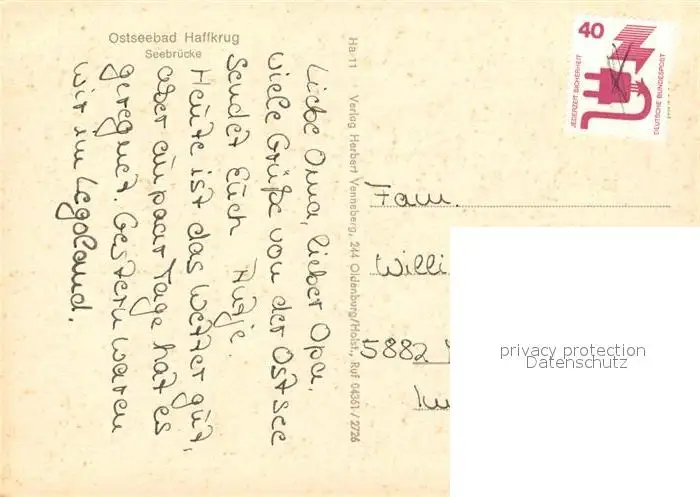 Ostseebad Haffkrug
Seebrücke
Liebe Oma, lieber Opa.
Viele Grüße von der Ostsee
sendet Euch Antje.
Heute ist das Wetter gut,
aber ein paar Tage hat es
geregnet. Gestern waren
wir im Legoland.
Ha 11 Verlag Herbert Venneberg, 244 Oldenburg/Holst., Ruf 04361/2726
40
JEDERZEIT SICHERHEIT
DEUTSCHE BUNDESPOST
Fam.
Willi
5882
privacy protection
Datenschutz